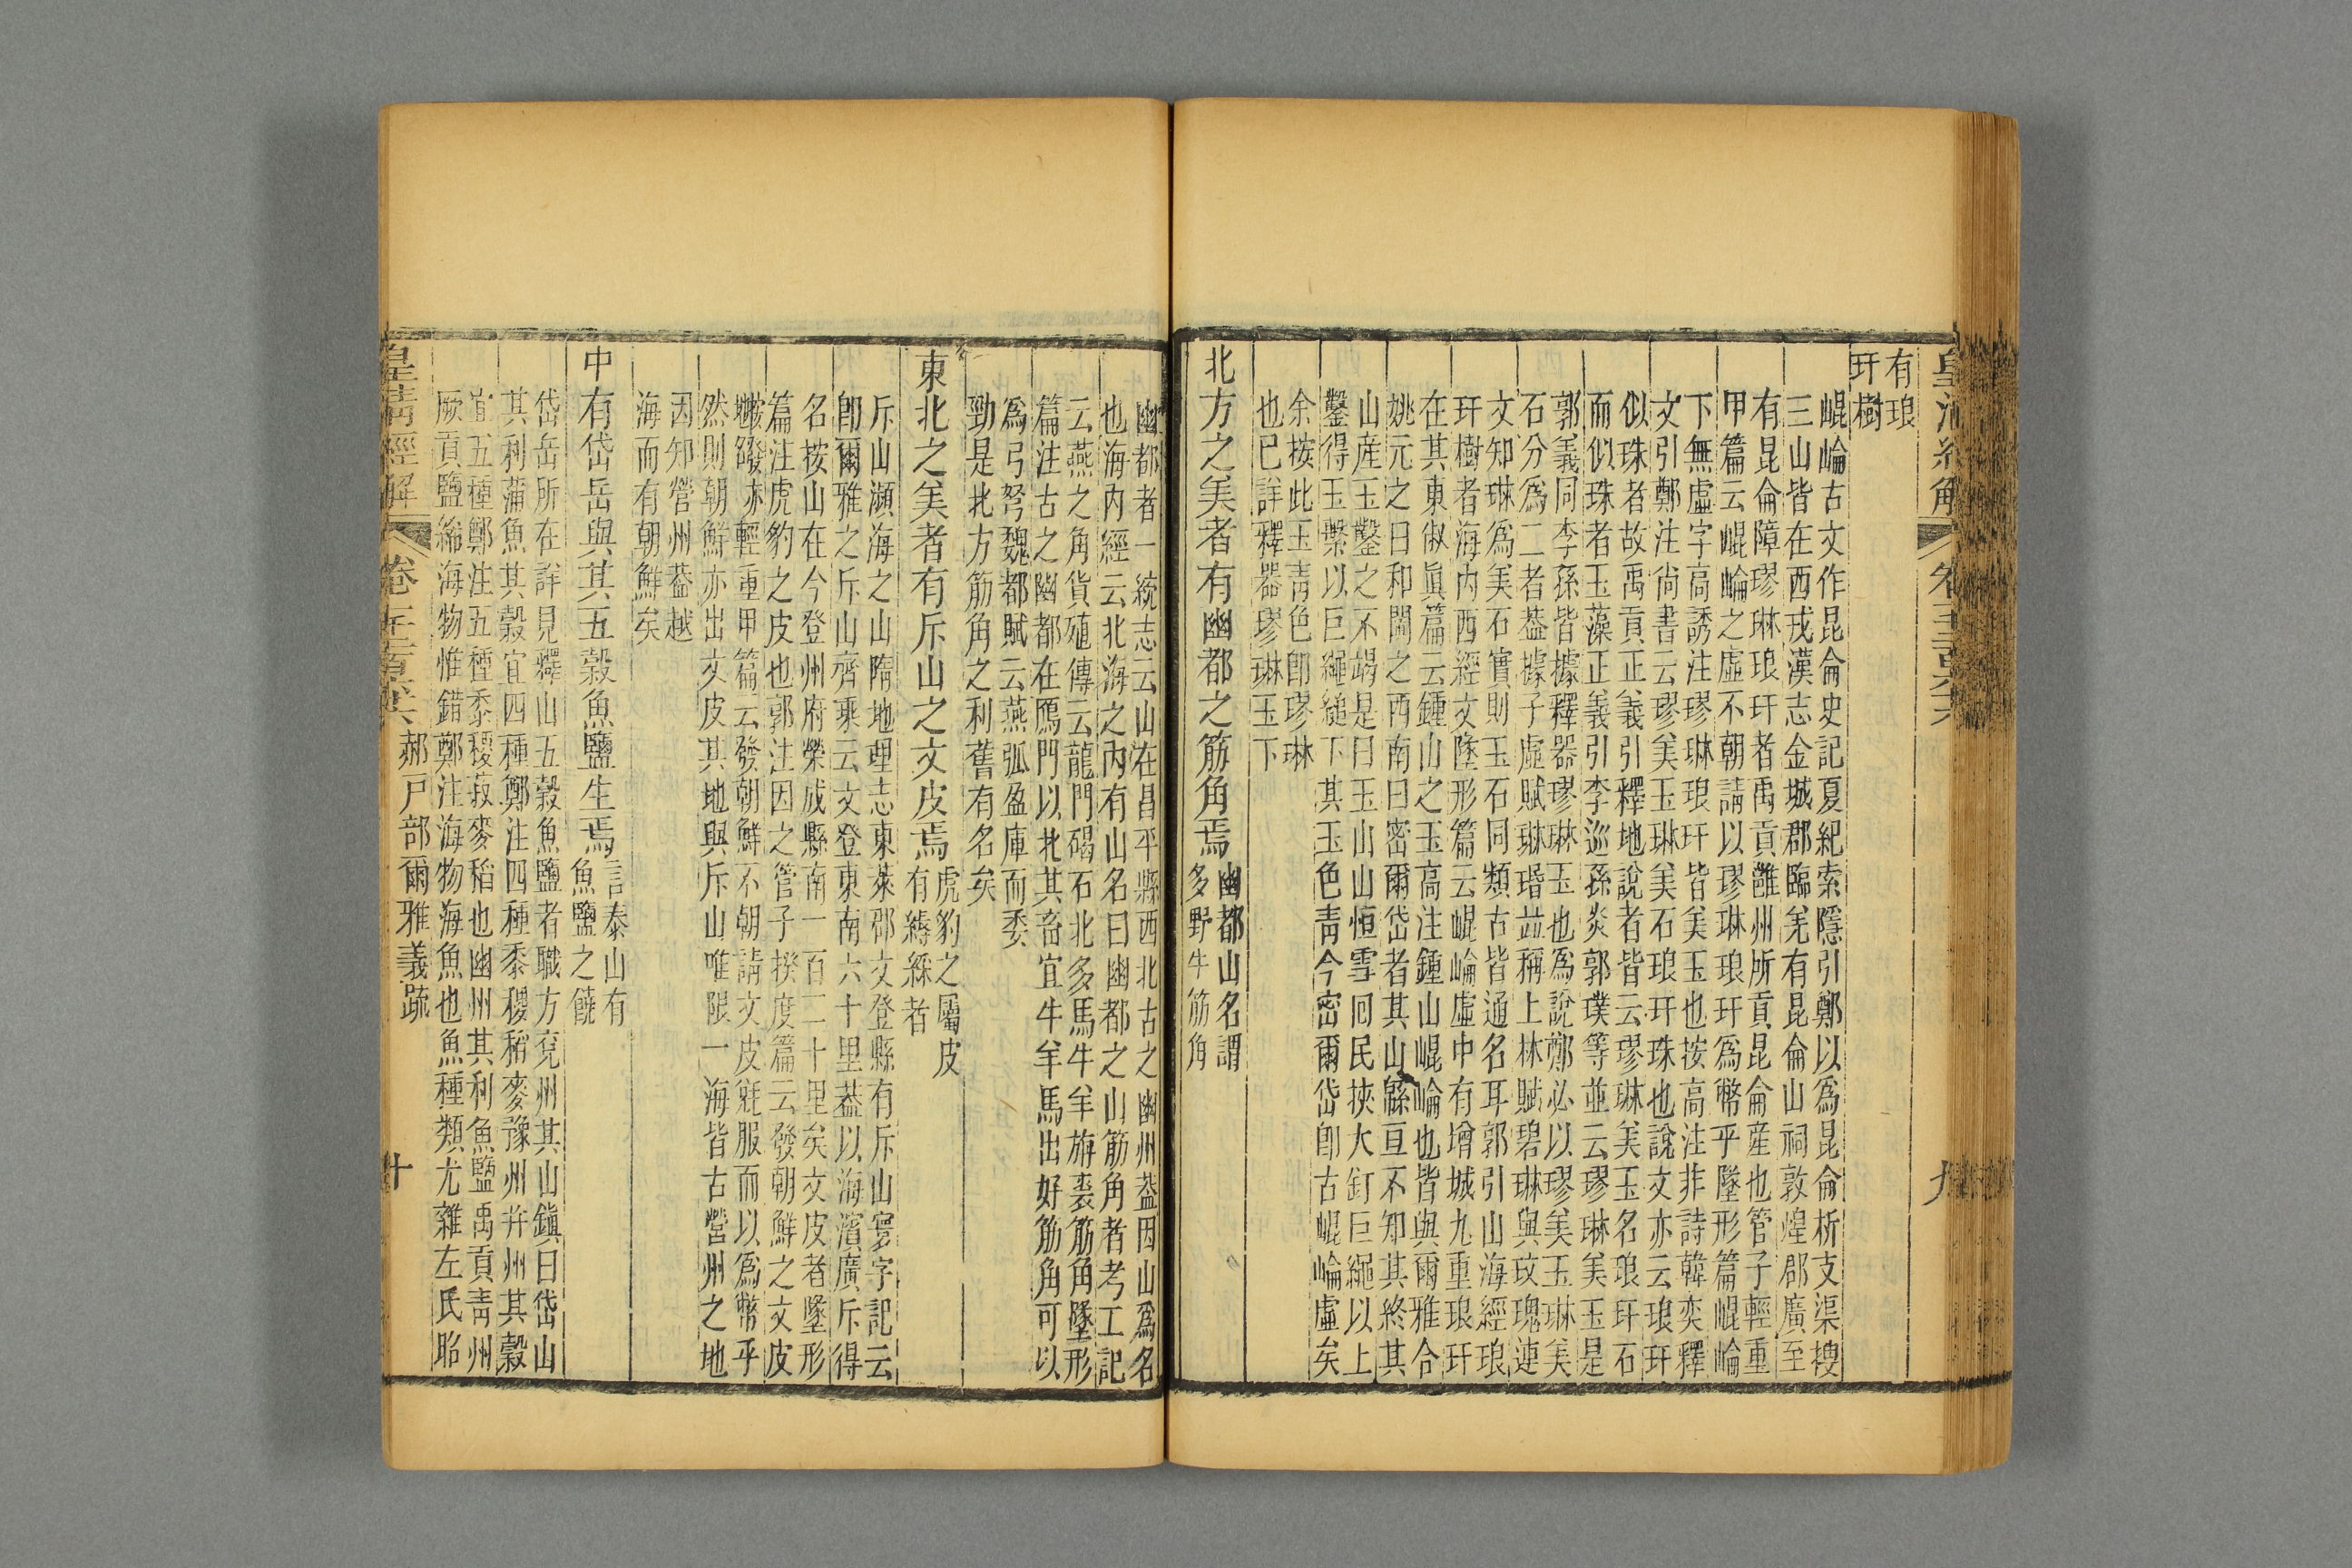 有琅
玕樹
崐崘古文作昆侖史記夏紀索隱引鄭以爲昆侖析支渠搜
三山皆在西戎漢志金城郡臨羌有昆侖山祠敦煌郡廣至
有昆侖障璆琳琅玕者禹貢雝州所貢昆侖産也管子輕重
甲篇云崐崘之虛不朝請以璆琳琅玕爲幣乎墬形篇崐崘
下無虛字高誘注璆琳琅玕皆美玉也按高注非詩韓奕釋
文引鄭注尙書云璆美玉琳美石琅玕珠也說文亦云琅玕
似珠者故禹貢正義引釋地說者皆云璆琳美玉名琅玕石
而似珠者玉藻正義引李巡孫炎郭璞等並云璆琳美玉是
郭義同李孫皆據釋器璆琳玉也爲說鄭必以璆美玉琳美
石分爲二者葢據子虛賦琳瑉竝稱上林賦碧琳與玟瑰連
文知琳爲美石實則玉石同類古皆通名耳郭引山海經琅
玕樹者海内西經文墬形篇云崐崘虛中有增城九重琅玕
在其東俶眞篇云鍾山之玉高注鍾山崐崘也皆與爾雅合
姚元之曰和闐之西南曰密爾岱者其山緜亘不知其終其
山産玉鑿之不竭是曰玉山山恒雪囘民挾大釘巨繩以上
鑿得玉繫以巨繩縋下其玉色靑今密爾岱卽古崐崘虛矣
余按此玉靑色卽璆琳
也已詳釋器璆琳玉下
北方之美者有幽都之筋角焉
幽都山名謂
多野牛筋角
幽都者一統志云山在昌平縣西北古之幽州葢因山爲名
也海内經云北海之内有山名曰幽都之山筋角者考工記
云燕之角貨殖傳云龍門碣石北多馬牛羊旃裘筋角墬形
篇注古之幽都在鴈門以北其畜宜牛羊馬出好筋角可以
爲弓弩魏都賦云燕弧盈庫而委
勁是北方筋角之利舊有名矣
東北之美者有斥山之文皮焉
虎豹之屬皮
有縟綵者
斥山瀕海之山隋地理志東萊郡文登縣有斥山寰宇記云
卽爾雅之斥山齊乘云文登東南六十里葢以海濱廣斥得
名按山在今登州府榮成縣南一百二十里矣文皮者墬形
篇注虎豹之皮也郭注因之管子揆度篇云發朝鮮之文皮
輕重甲篇云發朝鮮不朝請文皮毤服而以爲幣乎
然則朝鮮亦出文皮其地與斥山唯限一海皆古營州之地
因知營州葢越
海而有朝鮮矣
中有岱岳與其五穀魚鹽生焉
言泰山有
魚鹽之饒
岱岳所在詳見釋山五穀魚鹽者職方兗州其山鎭曰岱山
其利蒲魚其穀宜四種鄭注四種黍稷稻麥豫州幷州其穀
宜五種鄭注五種黍稷菽麥稻也幽州其利魚鹽禹貢靑州
厥貢鹽絺海物惟錯鄭注海物海魚也魚種類尤雜左氏昭
皇淸經解 郝戸部爾雅義疏 十